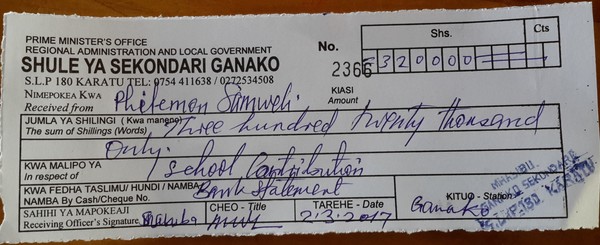 PRIME MINISTER'S OFFICE
REGIONAL ADMINISTRATION AND LOCAL GOVERNMENT
SHULE YA SEKONDARI GANAKO
S.L.P 180 KARATU TEL: 0754 411638 / 0272534508
No. 2366
Shs. Cts
320000
KIASI
Amount
NIMEPOKEA KWA
Received from Philemon
JUMLA YA SHILINGI (Kwa maneno)
The sum of Shillings (Words) Three hundred twenty thousand
only.
KWA MALIPO YA
In respect of School Contribution
KWA FEDHA TASLIMU/ HUNDI / NAMBA
NAMBA By Cash/Cheque No. Bank Statement
SAHIHI YA MAPOKEAJI
Receiving Officer's Signature
CHEO - Title
TAREHE - Date
2/3/2017
KITUO - Station
Ganako